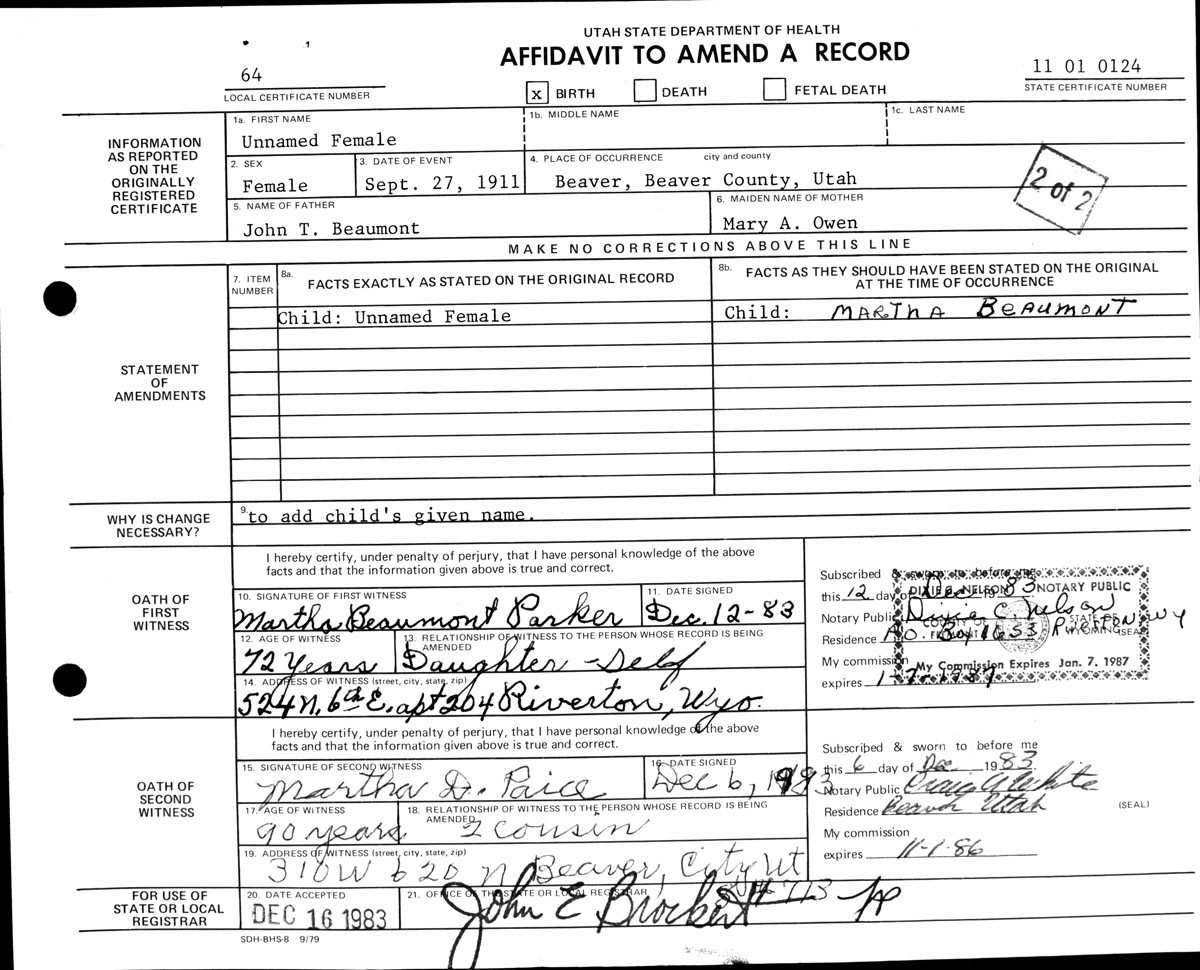 UTAH STATE DEPARTMENT OF HEALTH
AFFIDAVIT TO AMEND A RECORD
64
LOCAL CERTIFICATE NUMBER
x BIRTH DEATH FETAL DEATH
11 01 0124
STATE CERTIFICATE NUMBER
INFORMATION AS REPORTED ON THE ORIGINALLY REGISTERED CERTIFICATE
1a. FIRST NAME 1b. MIDDLE NAME 1c. LAST NAME
Unnamed Female
2. SEX 3. DATE OF EVENT 4. PLACE OF OCCURRENCE city and county
Female Sept. 27, 1911 Beaver, Beaver County, Utah
2 of 2
5. NAME OF FATHER 6. MAIDEN NAME OF MOTHER
John T. Beaumont Mary A. Owen
MAKE NO CORRECTIONS ABOVE THIS LINE
STATEMENT OF AMENDMENTS
7. ITEM NUMBER
8a. FACTS EXACTLY AS STATED ON THE ORIGINAL RECORD
8b. FACTS AS THEY SHOULD HAVE BEEN STATED ON THE ORIGINAL AT THE TIME OF OCCURRENCE
Child: Unnamed Female Child: MARTHA BEAUMONT
WHY IS CHANGE NECESSARY?
9. to add child's given name.
OATH OF FIRST WITNESS
I hereby certify, under penalty of perjury, that I have personal knowledge of the above
facts and that the information given above is true and correct.
10. SIGNATURE OF FIRST WITNESS 11. DATE SIGNED
Martha Beaumont Parker Dec. 12-83
12. AGE OF WITNESS 13. RELATIONSHIP OF WITNESS TO THE PERSON WHOSE RECORD IS BEING AMENDED
72 Years Daughter - Self
14. ADDRESS OF WITNESS (street, city, state, zip)
524 N. 6th E. apt 204 Riverton, Wyo.
Subscribed & sworn to before me
this 12 day of Dec 1983
Notary Public Dixie C. Nelson
Residence P.O. Box 1653 Riverton Wy (SEAL)
My commission
expires 1-7-1987
DIXIE C. NELSON NOTARY PUBLIC
COUNTY OF FREMONT STATE OF WYOMING
My Commission Expires Jan. 7, 1987
OATH OF SECOND WITNESS
I hereby certify, under penalty of perjury, that I have personal knowledge of the above
facts and that the information given above is true and correct.
15. SIGNATURE OF SECOND WITNESS 16. DATE SIGNED
Martha D. Paice Dec 6, 1983
17. AGE OF WITNESS 18. RELATIONSHIP OF WITNESS TO THE PERSON WHOSE RECORD IS BEING AMENDED
90 years 2 cousin
19. ADDRESS OF WITNESS (street, city, state, zip)
310 W 620 N Beaver, City Ut
Subscribed & sworn to before me
this 6 day of Dec 1983
Notary Public Craig A White
Residence Beaver Utah (SEAL)
My commission
expires 11-1-86
FOR USE OF STATE OR LOCAL REGISTRAR
20. DATE ACCEPTED 21. OFFICE OF THE STATE OR LOCAL REGISTRAR
DEC 16 1983 John E Brockert
SDH-BHS-8 9/79